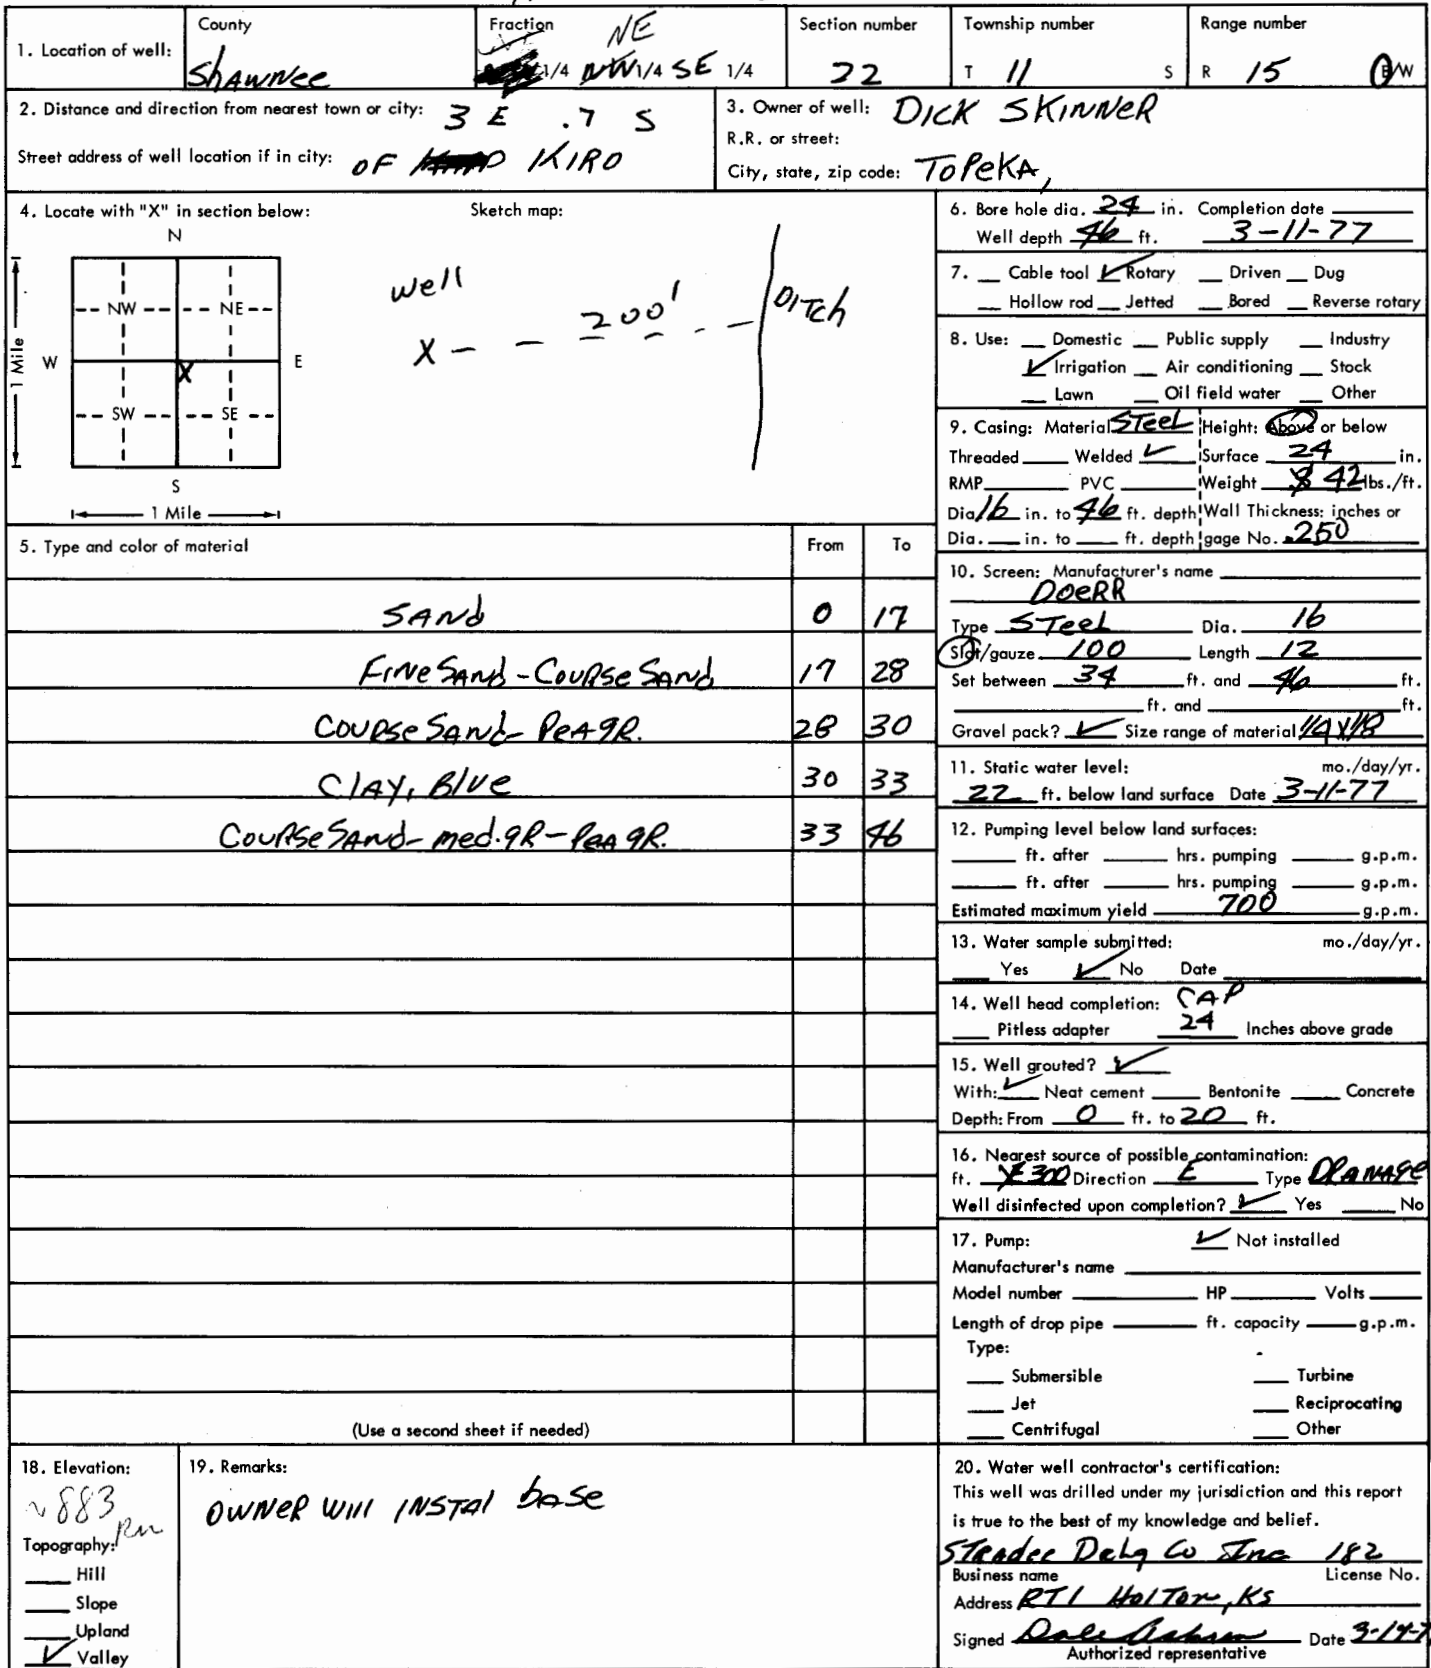 County
Fraction
NE
Section number
Township number
Range number
1. Location of well:
Shawnee
1/4 NW 1/4 SE 1/4
22
T 11 S
R 15 E/W
2. Distance and direction from nearest town or city: 3 E .7 S
Street address of well location if in city: OF KIRO
3. Owner of well: DICK SKINNER
R.R. or street:
City, state, zip code: TOPEKA,
4. Locate with "X" in section below:
Sketch map:
N
NW NE
W E
X
SW SE
S
1 Mile
1 Mile
well
X - - 200' - - -
DITCH
5. Type and color of material From To
SAND 0 17
FINE SAND - COURSE SAND 17 28
COURSE SAND - PEA GR. 28 30
CLAY, BLUE 30 33
COURSE SAND - med. GR - PEA GR. 33 46
(Use a second sheet if needed)
6. Bore hole dia. 24 in. Completion date
Well depth 46 ft. 3-11-77
7. Cable tool ✓ Rotary Driven Dug
Hollow rod Jetted Bored Reverse rotary
8. Use: Domestic Public supply Industry
✓ Irrigation Air conditioning Stock
Lawn Oil field water Other
9. Casing: Material STEEL Height: Above or below
Threaded Welded ✓ Surface 24 in.
RMP PVC Weight 42 lbs./ft.
Dia 16 in. to 46 ft. depth Wall Thickness: inches or
Dia. in. to ft. depth gage No. .250
10. Screen: Manufacturer's name
DOERR
Type STEEL Dia. 16
Slot/gauze 100 Length 12
Set between 34 ft. and 46 ft.
ft. and ft.
Gravel pack? ✓ Size range of material 1/4 x 1/8
11. Static water level: mo./day/yr.
22 ft. below land surface Date 3-11-77
12. Pumping level below land surfaces:
ft. after hrs. pumping g.p.m.
ft. after hrs. pumping g.p.m.
Estimated maximum yield 700 g.p.m.
13. Water sample submitted: mo./day/yr.
Yes ✓ No Date
14. Well head completion: CAP
Pitless adapter 24 Inches above grade
15. Well grouted? ✓
With: ✓ Neat cement Bentonite Concrete
Depth: From 0 ft. to 20 ft.
16. Nearest source of possible contamination:
ft. 300 Direction E Type DRANAGE
Well disinfected upon completion? ✓ Yes No
17. Pump: ✓ Not installed
Manufacturer's name
Model number HP Volts
Length of drop pipe ft. capacity g.p.m.
Type:
Submersible Turbine
Jet Reciprocating
Centrifugal Other
18. Elevation:
~883
Topography:
Hill
Slope
Upland
✓ Valley
19. Remarks:
OWNER WILL INSTAL base
20. Water well contractor's certification:
This well was drilled under my jurisdiction and this report
is true to the best of my knowledge and belief.
Strader Drlg Co Inc 182
Business name License No.
Address RT1 Holton, KS
Signed Date 3-14-7
Authorized representative